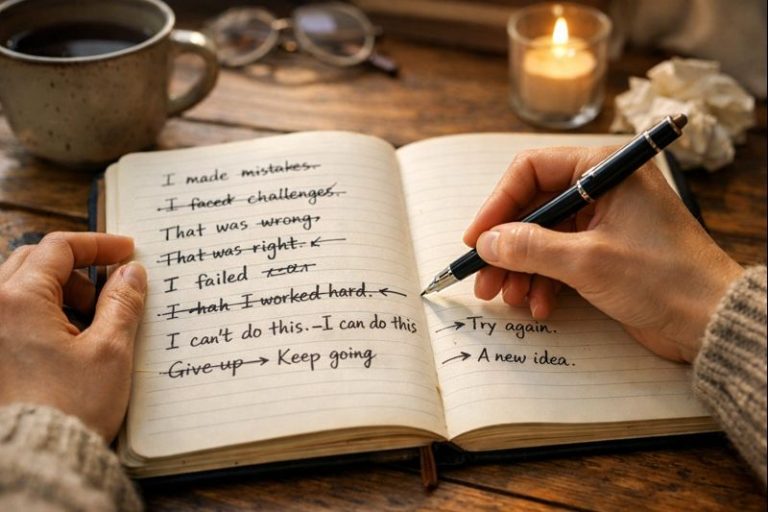 I made mistakes.
I faced challenges.
That was wrong,
That was right. ←
I failed
I hah I worked hard. ←
I can't do this.–I can do this
Give up → Keep going
→ Try again.
→ A new idea.